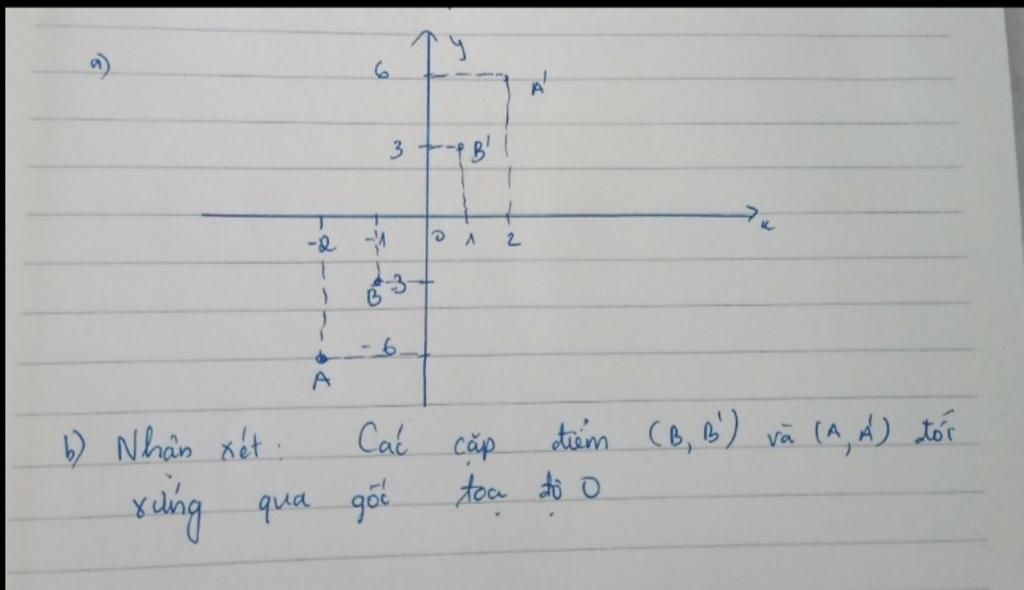 a)
y
6
A'
3
B'
-2 -1 0 1 2
x
B -3
-6
A
b) Nhân xét: Các cặp điểm (B, B') và (A, A') đối
xứng qua gốc toạ độ O